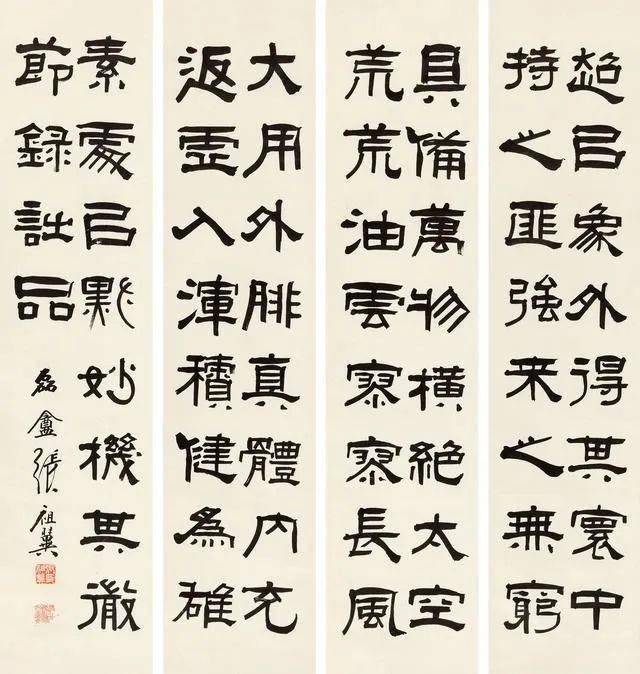 超以象外得其寰中
持之匪強來之無窮
具備萬物橫絕太空
荒荒油雲寥寥長風
大用外腓真體內充
返虛入渾積健為雄
素處以默妙機其微
節錄詩品
磊盦張祖翼